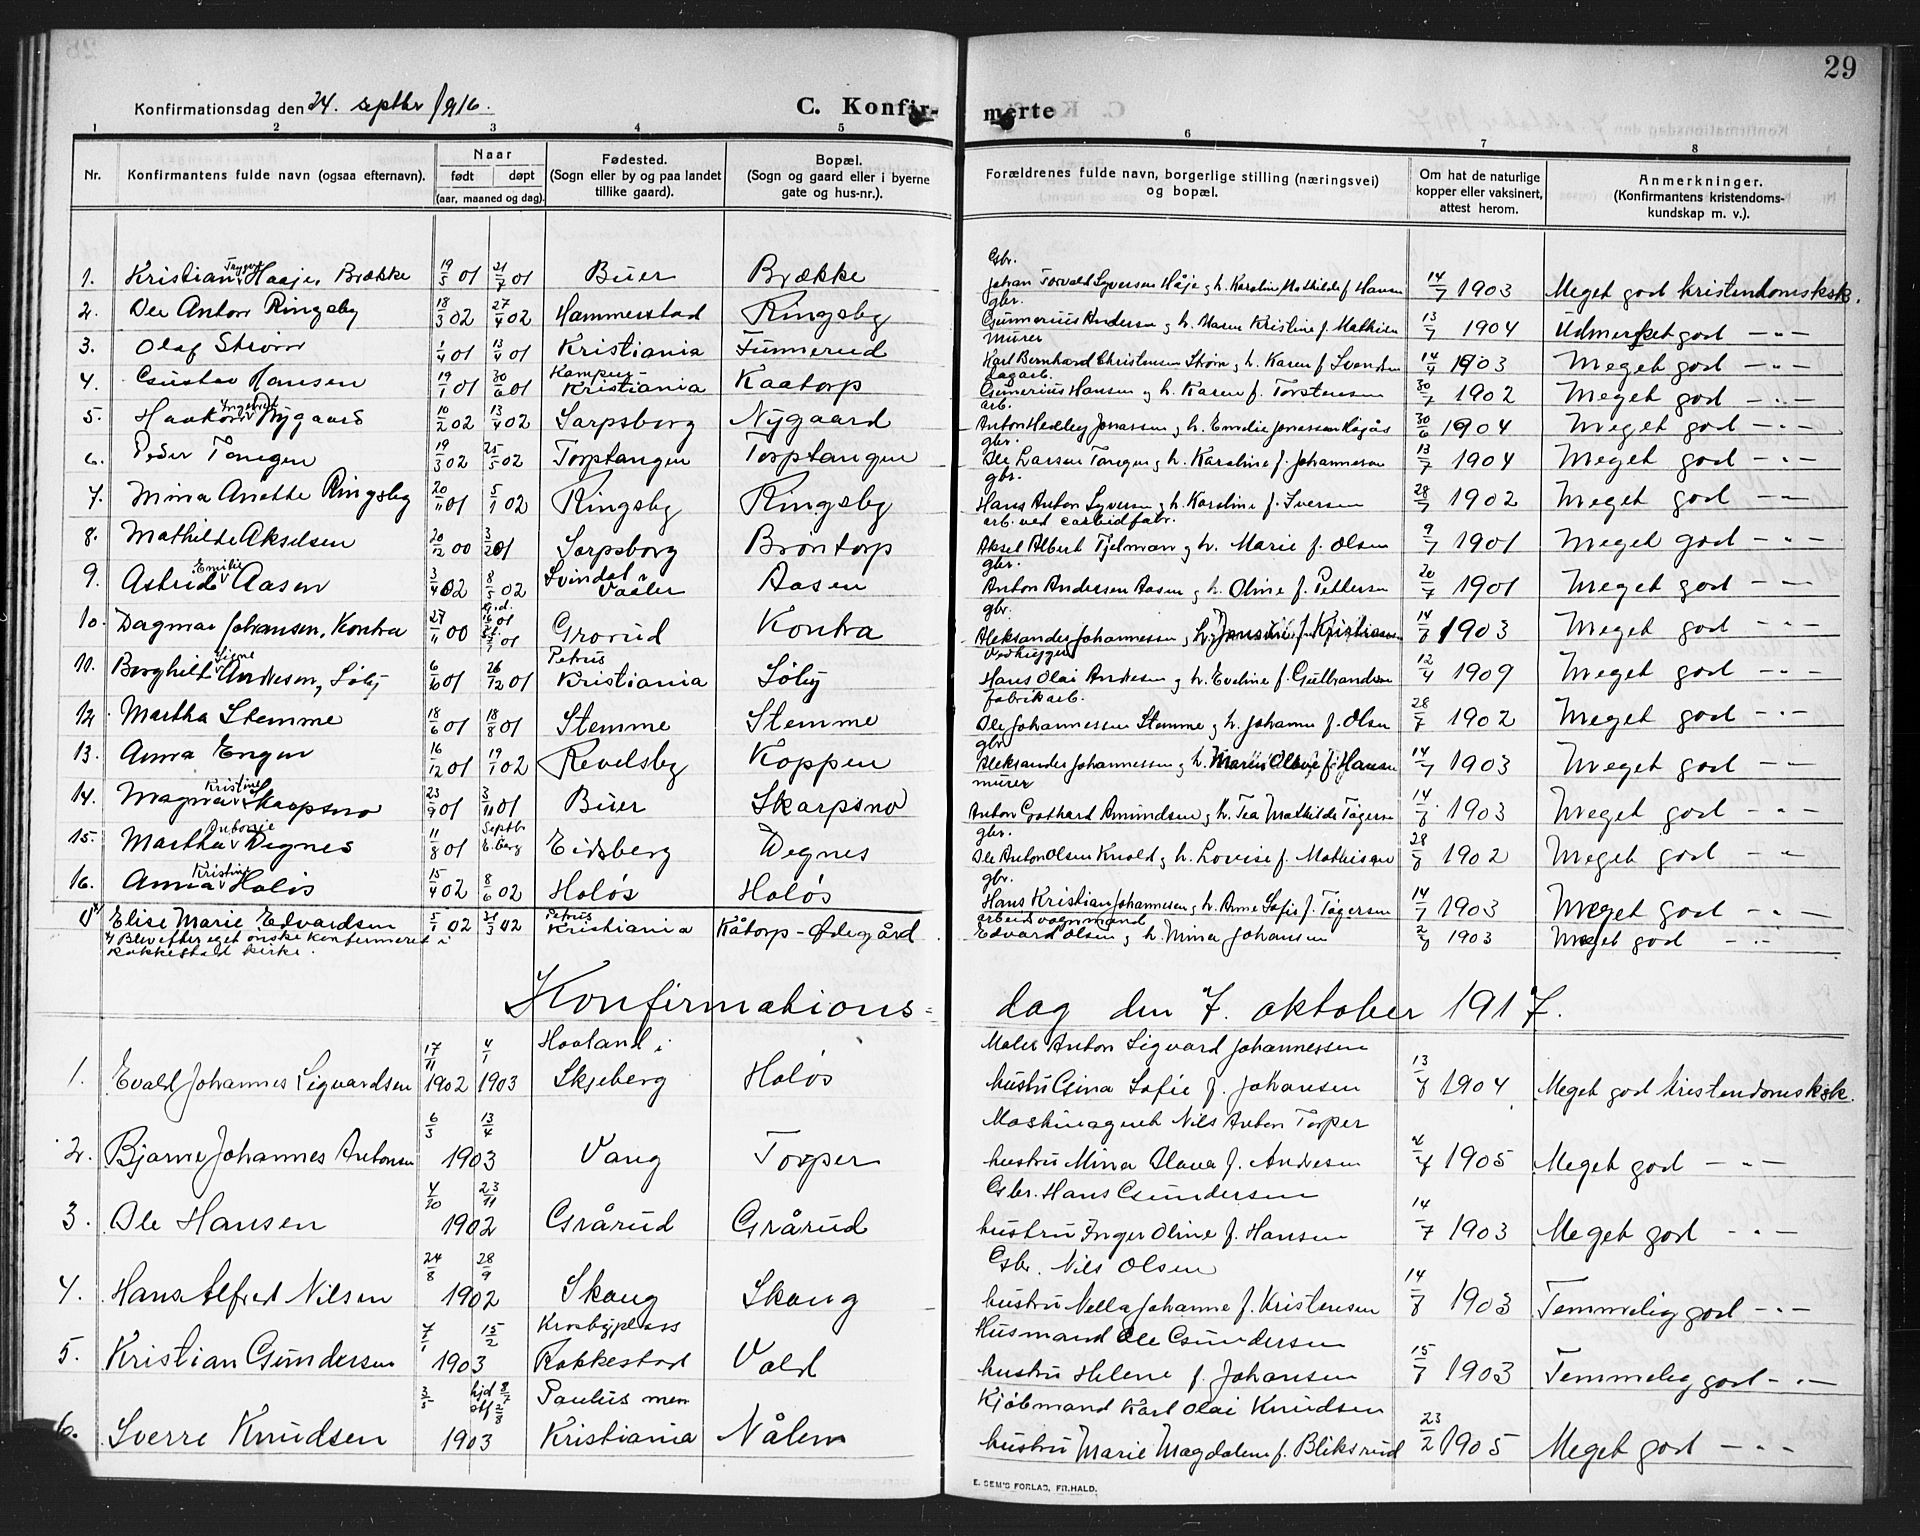 29
Konfirmationsdag den 24. septbr 1916.
C. Konfirmerte
1 2 3 4 5 6 7 8
Nr. | Konfirmantens fulde navn (ogsaa efternavn). | Naar født døpt (aar, maaned og dag). | Fødested. (Sogn eller by og paa landet tillike gaard). | Bopæl. (Sogn og gaard eller i byerne gate og hus-nr.). | Forældrenes fulde navn, borgerlige stilling (næringsvei) og bopæl. | Om hat de naturlige kopper eller vaksinert, attest herom. | Anmerkninger. (Konfirmantens kristendomskundskap m. v.).
1. Kristian Trygve Haaje, Brække 19/5 01 21/7 01 Buer Brække Gbr. Johan Torvald Syversen Håje og h. Karoline Mathilde f. Hansen 14/7 1903 Meget god kristendomsksk.
2. Ole Anton Ringsby 18/3 02 27/4 02 Hammerstad Ringsby gbr. Gunnerius Andersen og h. Maren Kristine f. Mathisen 13/7 1904 Udmerket god -"-
3. Olaf Strøm 1/4 01 13/4 01 Kristiania Funnerud Murer Karl Bernhard Christensen Strøm og h. Karen f. Svendsen 14/4 1903 Meget god -"-
4. Gustav Hansen 19/1 01 30/6 01 Kampen - Kristiania Kaatorp dagarb. Gunerius Hansen og h. Karen f. Torstensen 30/7 1902 Meget god -"-
5. Haakon Ingvald Nygaard 10/2 02 13/4 02 Sarpsborg Nygaard arb. Anton Hedley Jonassen og h. Emelie Jonassen 30/6 1904 Meget god -"-
6. Peder Tangen 19/3 02 25/5 02 Torptangen Torptangen gbr. Ole Larsen Tangen og h. Karoline f. Johannesen 13/7 1904 Meget god -"-
7. Mina Anette Ringsby 20/11 01 5/1 02 Ringsby Ringsby gbr. Hans Anton Syversen og h. Karoline f. Iversen 28/7 1902 Meget god -"-
8. Mathilde Akselsen 20/12 00 3/2 01 Sarpsborg Brøntorp arb. ved carbidfabr. Aksel Albert Tjelman og h. Marie f. Olsen 9/7 1901 Meget god -"-
9. Astrid Emilie Aasen 3/4 02 8/5 02 Svindal i Vaaler Aasen gbr. Anton Andersen Aasen og h. Oline f. Pettersen 20/7 1901 Meget god -"-
10. Dagmar Johansen, Kontra 27/11 00 01 Grorud Kontra gbr. Aleksander Johannessen og h. Jensine f. Kristiansen 14/7 1903 Meget god -"-
11. Borghild Signe Andresen, Søby 6/6 01 26/12 01 Petrus Kristiania Søby Vedhugger Hans Olai Andresen og h. Eveline f. Gulbrandsen 12/4 1909 Meget god -"-
12. Martha Stemme 18/6 01 18/8 01 Stemme Stemme fabrikarb. Ole Johannessen Stemme og h. Johanne f. Olsen 28/7 1902 Meget god -"-
13. Anna Engen 16/12 01 19/1 02 Revelsby Koppen gbr. Aleksander Johannessen og h. Maren Olave f. Hansen 14/7 1903 Meget god -"-
14. Magna Kristine Skarpsno 23/9 01 3/11 01 Buer Skarpsno murer Anton Gothard Amundsen og h. Tea Mathilde Tøgersen 14/7 1903 Meget god -"-
15. Martha Antonie Degnes 11/8 01 Septbr E.berg Eidsberg Degnes gbr. Ole Anton Olsen Knold og h. Lovise f. Mathisen 28/8 1902 Meget god -"-
16. Anna Kristine Holøs 15/4 02 8/6 02 Holøs Holøs gbr. Hans Kristian Johannesen og h. Anne Sofie f. Tøgersen 14/7 1903 Meget god -"-
Elise Marie Edvardsen 5/1 02 31/3 02 Petrus Kristiania Kåtorp-Ødegård arbeidsvognmand Edvard Olsen og h. Mina Johansen 2/8 1903 Meget god -"-
Blev efter eget ønske konfirmeret i
Rakkestad kirke.
Konfirmationsdag den 7. oktober 1917.
1. Evald Johannes Sigvardsen 17/11 1902 4/1 1903 Haaland i Skjeberg Holøs Maler Anton Sigvard Johannessen hustru Gina Sofie f. Johansen 13/7 1904 Meget god kristendomsksk.
2. Bjarne Johannes Antonsen 6/3 13/4 1903 Vang Torper Maskinagent Nils Anton Torper hustru Mina Olava f. Andresen 1905 Meget god -"-
3. Ole Hansen 4/10 23/11 1902 Grårud Grårud Gbr. Hans Gundersen hustru Inger Oline f. Hansen 14/7 1903 Meget god -"-
4. Hans Alfred Nilsen 24/8 28/9 1902 Skaug Skaug Gbr. Nils Olsen hustru Nella Johanne f. Kristensen 14/8 1903 Temmelig god -"-
5. Kristian Gundersen 7/1 15/2 1903 Krosbyplass Rakkestad Vold Husmand Ole Gundersen hustru Helene f. Johansen 15/7 1903 Temmelig god -"-
6. Sverre Knudsen 3/5 hjd 1903 Paulus men Kristiania Nålen Kjøbmand Karl Olai Knudsen hustru Marie Magdalene f. Bliksrud 23/2 1905 Meget god -"-
E. SEM'S FORLAG, FR.HALD.